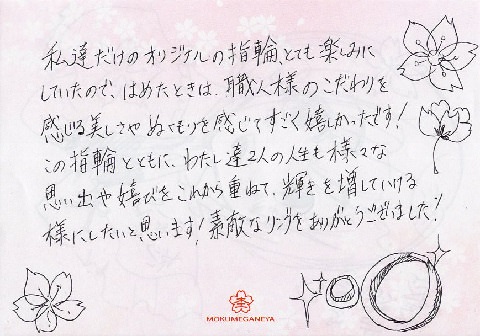 私達だけのオリジナルの指輪、とても楽しみに
していたので、はめたときは、職人様のこだわりを
感じる美しさやぬくもりを感じてすごく嬉しかったです!
この指輪とともに、わたし達2人の人生も様々な
思い出や嬉びをこれから重ねて、輝きを増していける
様にしたいと思います!素敵なリングをありがとうございました!
MOKUMEGANEYA